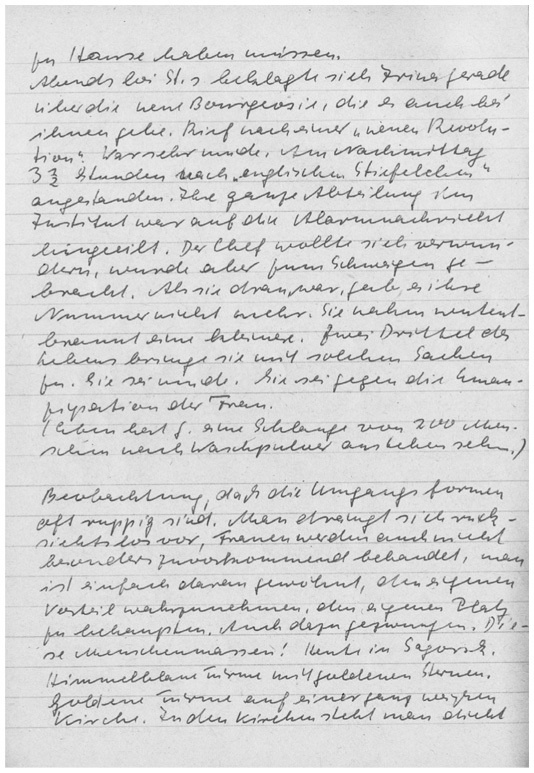 zu Hause haben müssen.
Abends bei St.s beklagte sich Irina gerade
über die neue Bourgeosie, die es auch bei
ihnen gebe. Rief nach einer „neuen Revolu-
tion“. War sehr müde. Am Nachmittag
3½ Stunden nach „englischen Stiefelchen“
angestanden. Ihre ganze Abteilung im
Institut war auf die Alarmnachricht
hingeeilt. Der Chef wollte sich verwun-
dern, wurde aber zum Schweigen ge-
bracht. Als sie dran war, gab es ihre
Nummer nicht mehr. Sie nahm wutent-
brannt eine kleinere. Zwei Drittel des
Lebens bringe sie mit solchen Sachen
zu. Sie sei müde. Sie sei gegen die Eman-
zipation der Frau.
(Eben hat G. eine Schlange von 200 Men-
schen nach Waschpulver anstehen sehn.)
Beobachtung, daß die Umgangsformen
oft ruppig sind. Man drängt sich rück-
sichtslos vor, Frauen werden auch nicht
besonders zuvorkommend behandelt, man
ist einfach daran gewöhnt, den eigenen
Vorteil wahrzunehmen, den eigenen Platz
zu behaupten. Auch dazu gezwungen. Die-
se Menschenmassen! Heute in Sagorsk.
Himmelblaue Türme mit goldenen Sternen.
Goldene Türme auf einer ganz weißen
Kirche. In den Kirchen steht man dicht